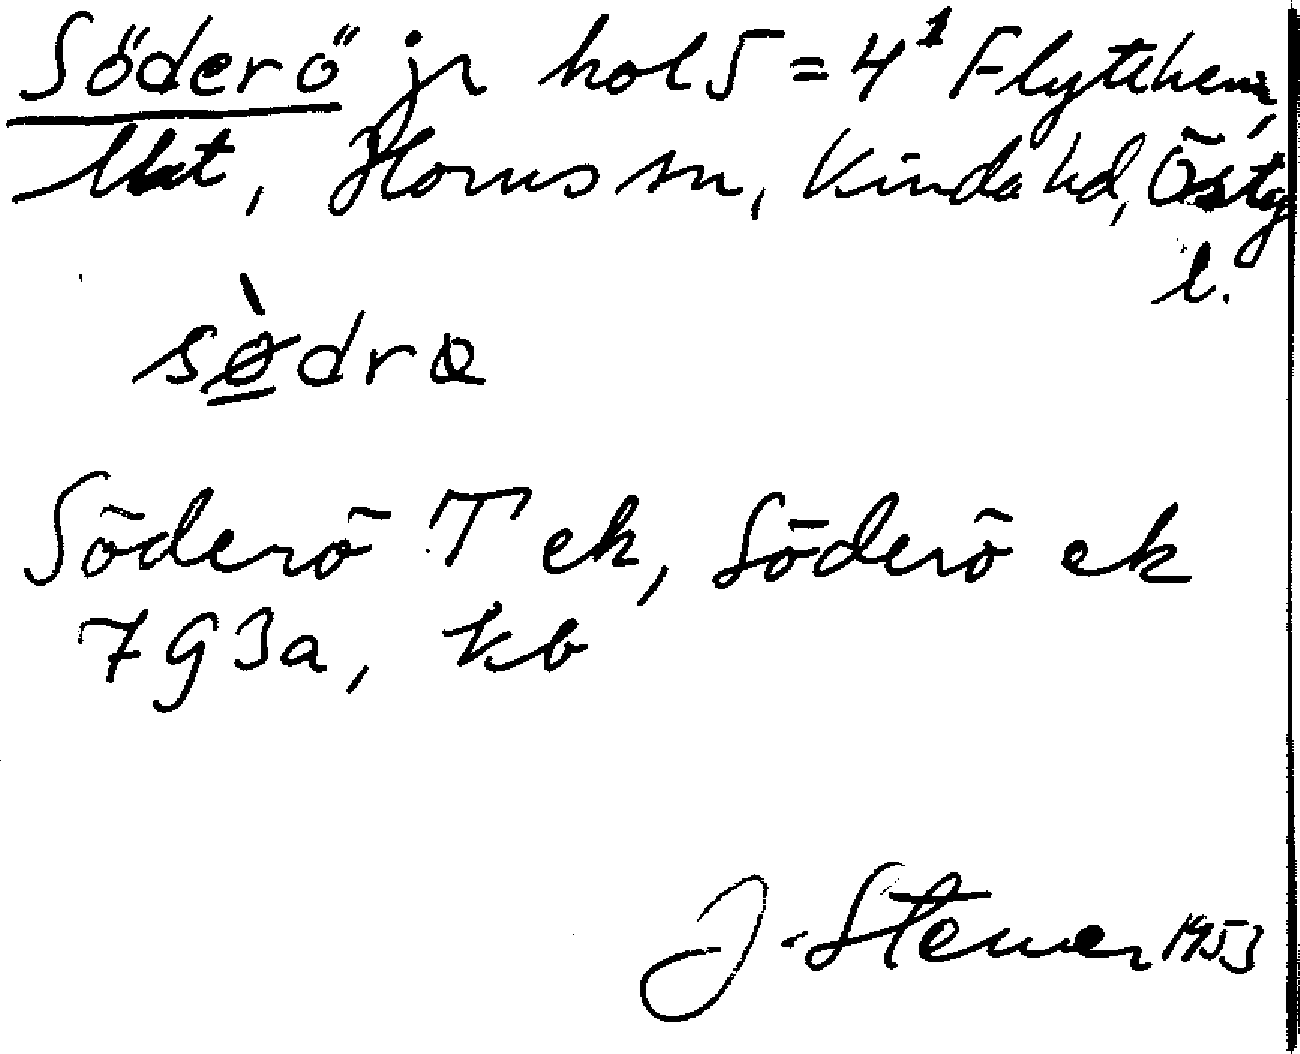 Söderö jr hol 5 = 4¹ Flythem,
Horns sn, Kinda hd, Östg
l.
sø̀dra
Söderö T ek, Söderö ek
7 g 3a, kb
J. Stemer 1953